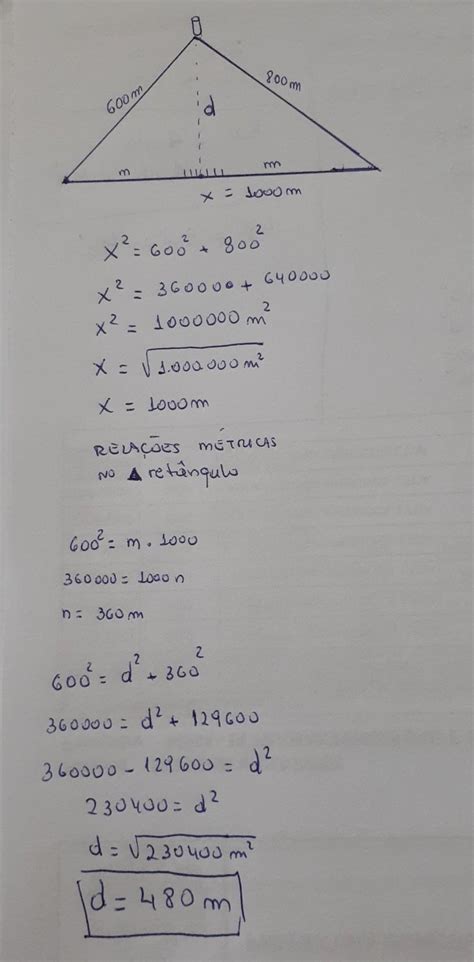 600m
800m
d
m
m
x = 1000m
x² = 600² + 800²
x² = 360000 + 640000
x² = 1000000 m²
x = √1.000.000 m²
x = 1000m
RELAÇÕES MÉTRICAS
NO ▲ retângulo
600² = m . 1000
360000 = 1000 n
n = 360 m
600² = d² + 360²
360000 = d² + 129600
360000 - 129600 = d²
230400 = d²
d = √230400 m²
d = 480 m